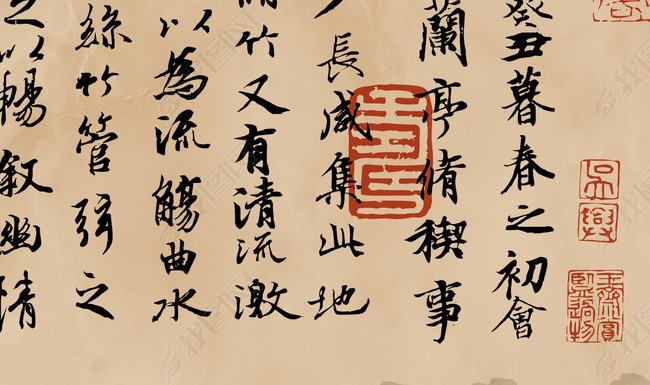 癸丑暮春之初會
蘭亭脩稧事
長咸集此地
竹又有清流激
以為流觴曲水
絲竹管弦之
以暢敘幽情
吳興